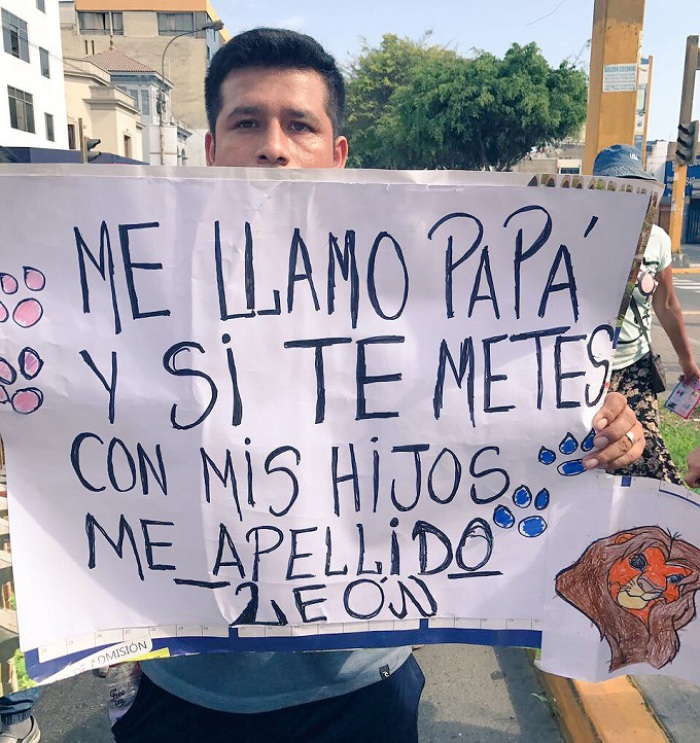 ME LLAMO PAPÁ
Y SI TE METES
CON MIS HIJOS
ME_APELLIDO
LEÓN
ADMISIÓN